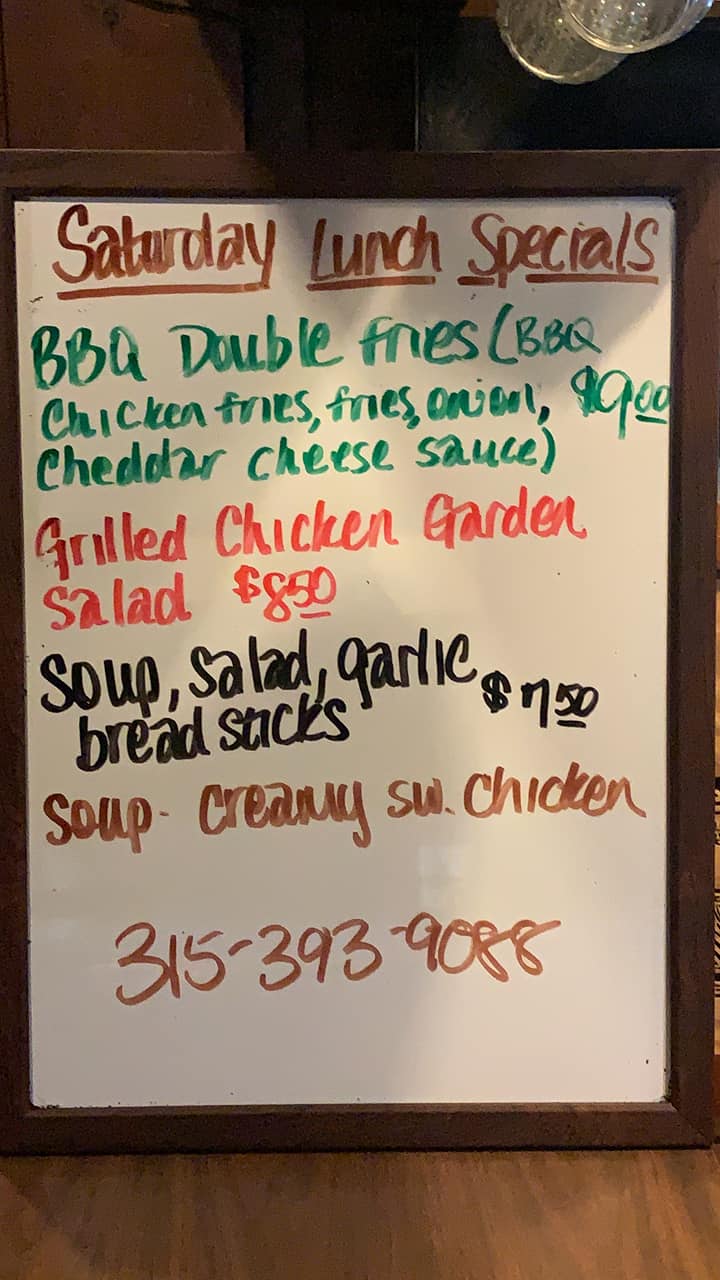 Saturday Lunch Specials
BBQ Double fries (BBQ
Chicken fries, fries, onion, $9.00
Cheddar cheese sauce)
Grilled Chicken Garden
Salad $8.50
Soup, Salad, garlic
bread sticks $7.50
Soup - Creamy sw. Chicken
315-393-9088